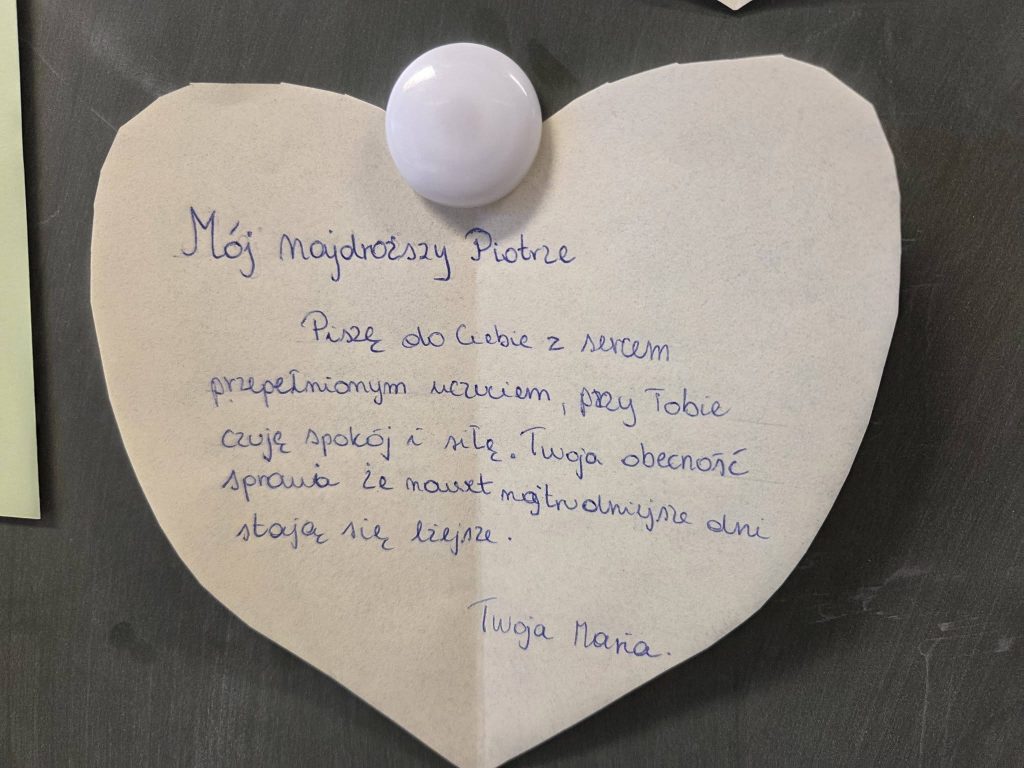 Mój najdroższy Piotrze
Piszę do Ciebie z sercem
przepełnionym uczuciem, przy Tobie
czuję spokój i siłę. Twoja obecność
sprawia że nawet najtrudniejsze dni
stają się lżejsze.
Twoja Maria.